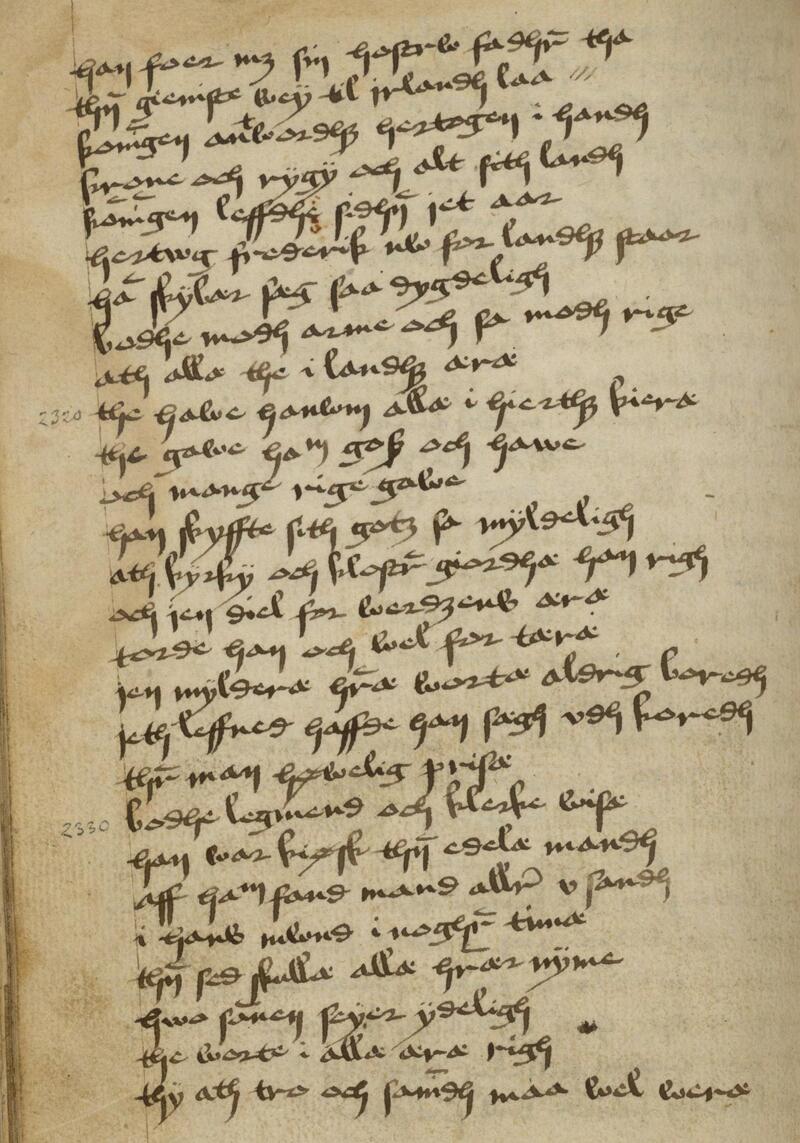 han foer mꝫ sin hostrw fadhr̄ tha
thn̄ gieniste wey til jrlandh laa ///
konīgen antwordhꝫ hertogen i handh
krone och rygy och alt sith landh
konīgen leffdhꝫ sidhn̄ jet aar
hertwg frederik nw for landhꝫ staar
hā skylær sæg saa dygdeligh
bodhe modh arme och sa modh rige
ath allæ the i landhꝫ æræ
2320 the hawe hanwm allæ i hierthꝫ kieræ
the gawe ham gotz och hawe
och mange rige gawe
han skyffte sith gotz sa myldeligh
ath kyrky och klostr̄ giordhæ han righ
och jen diel for werdzens æræ
torde han och wel for tæræ
jen mylderæ hr̄æ wortæ aldrig boredh
jeth leffned haffde han sægh vdh koredh
thr̄ man høwelig prisæ
2330 bodhe legmend och klerke wisæ
han war kiøsk thn̄ edelæ mandh
aff ham fand mand allr̄ v sandh
i hans mwnd i noghr̄ timæ
thn̄ sed skullæ allæ hr̄ær nyme
hwo sānen seyer ydeligh
the worte i allæ æræ righ
thy ath tro och samdh maa wel wæræ